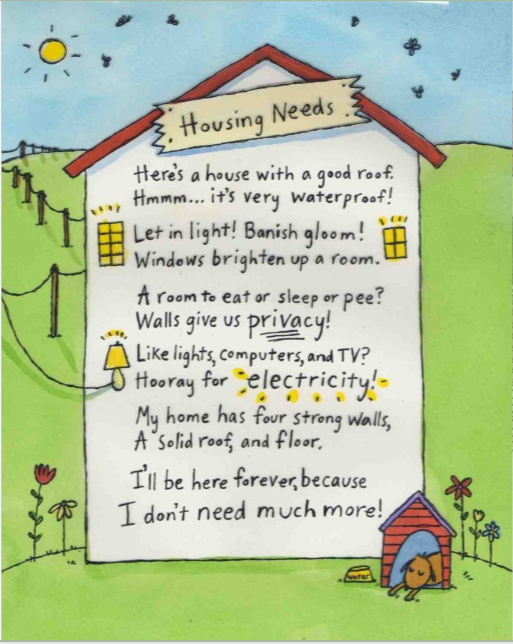 Housing Needs
Here's a house with a good roof.
Hmmm... it's very waterproof!
Let in light! Banish gloom!
Windows brighten up a room.
A room to eat or sleep or pee?
Walls give us privacy!
Like lights, computers, and TV?
Hooray for electricity!
My home has four strong walls,
A solid roof, and floor.
I'll be here forever, because
I don't need much more!
water